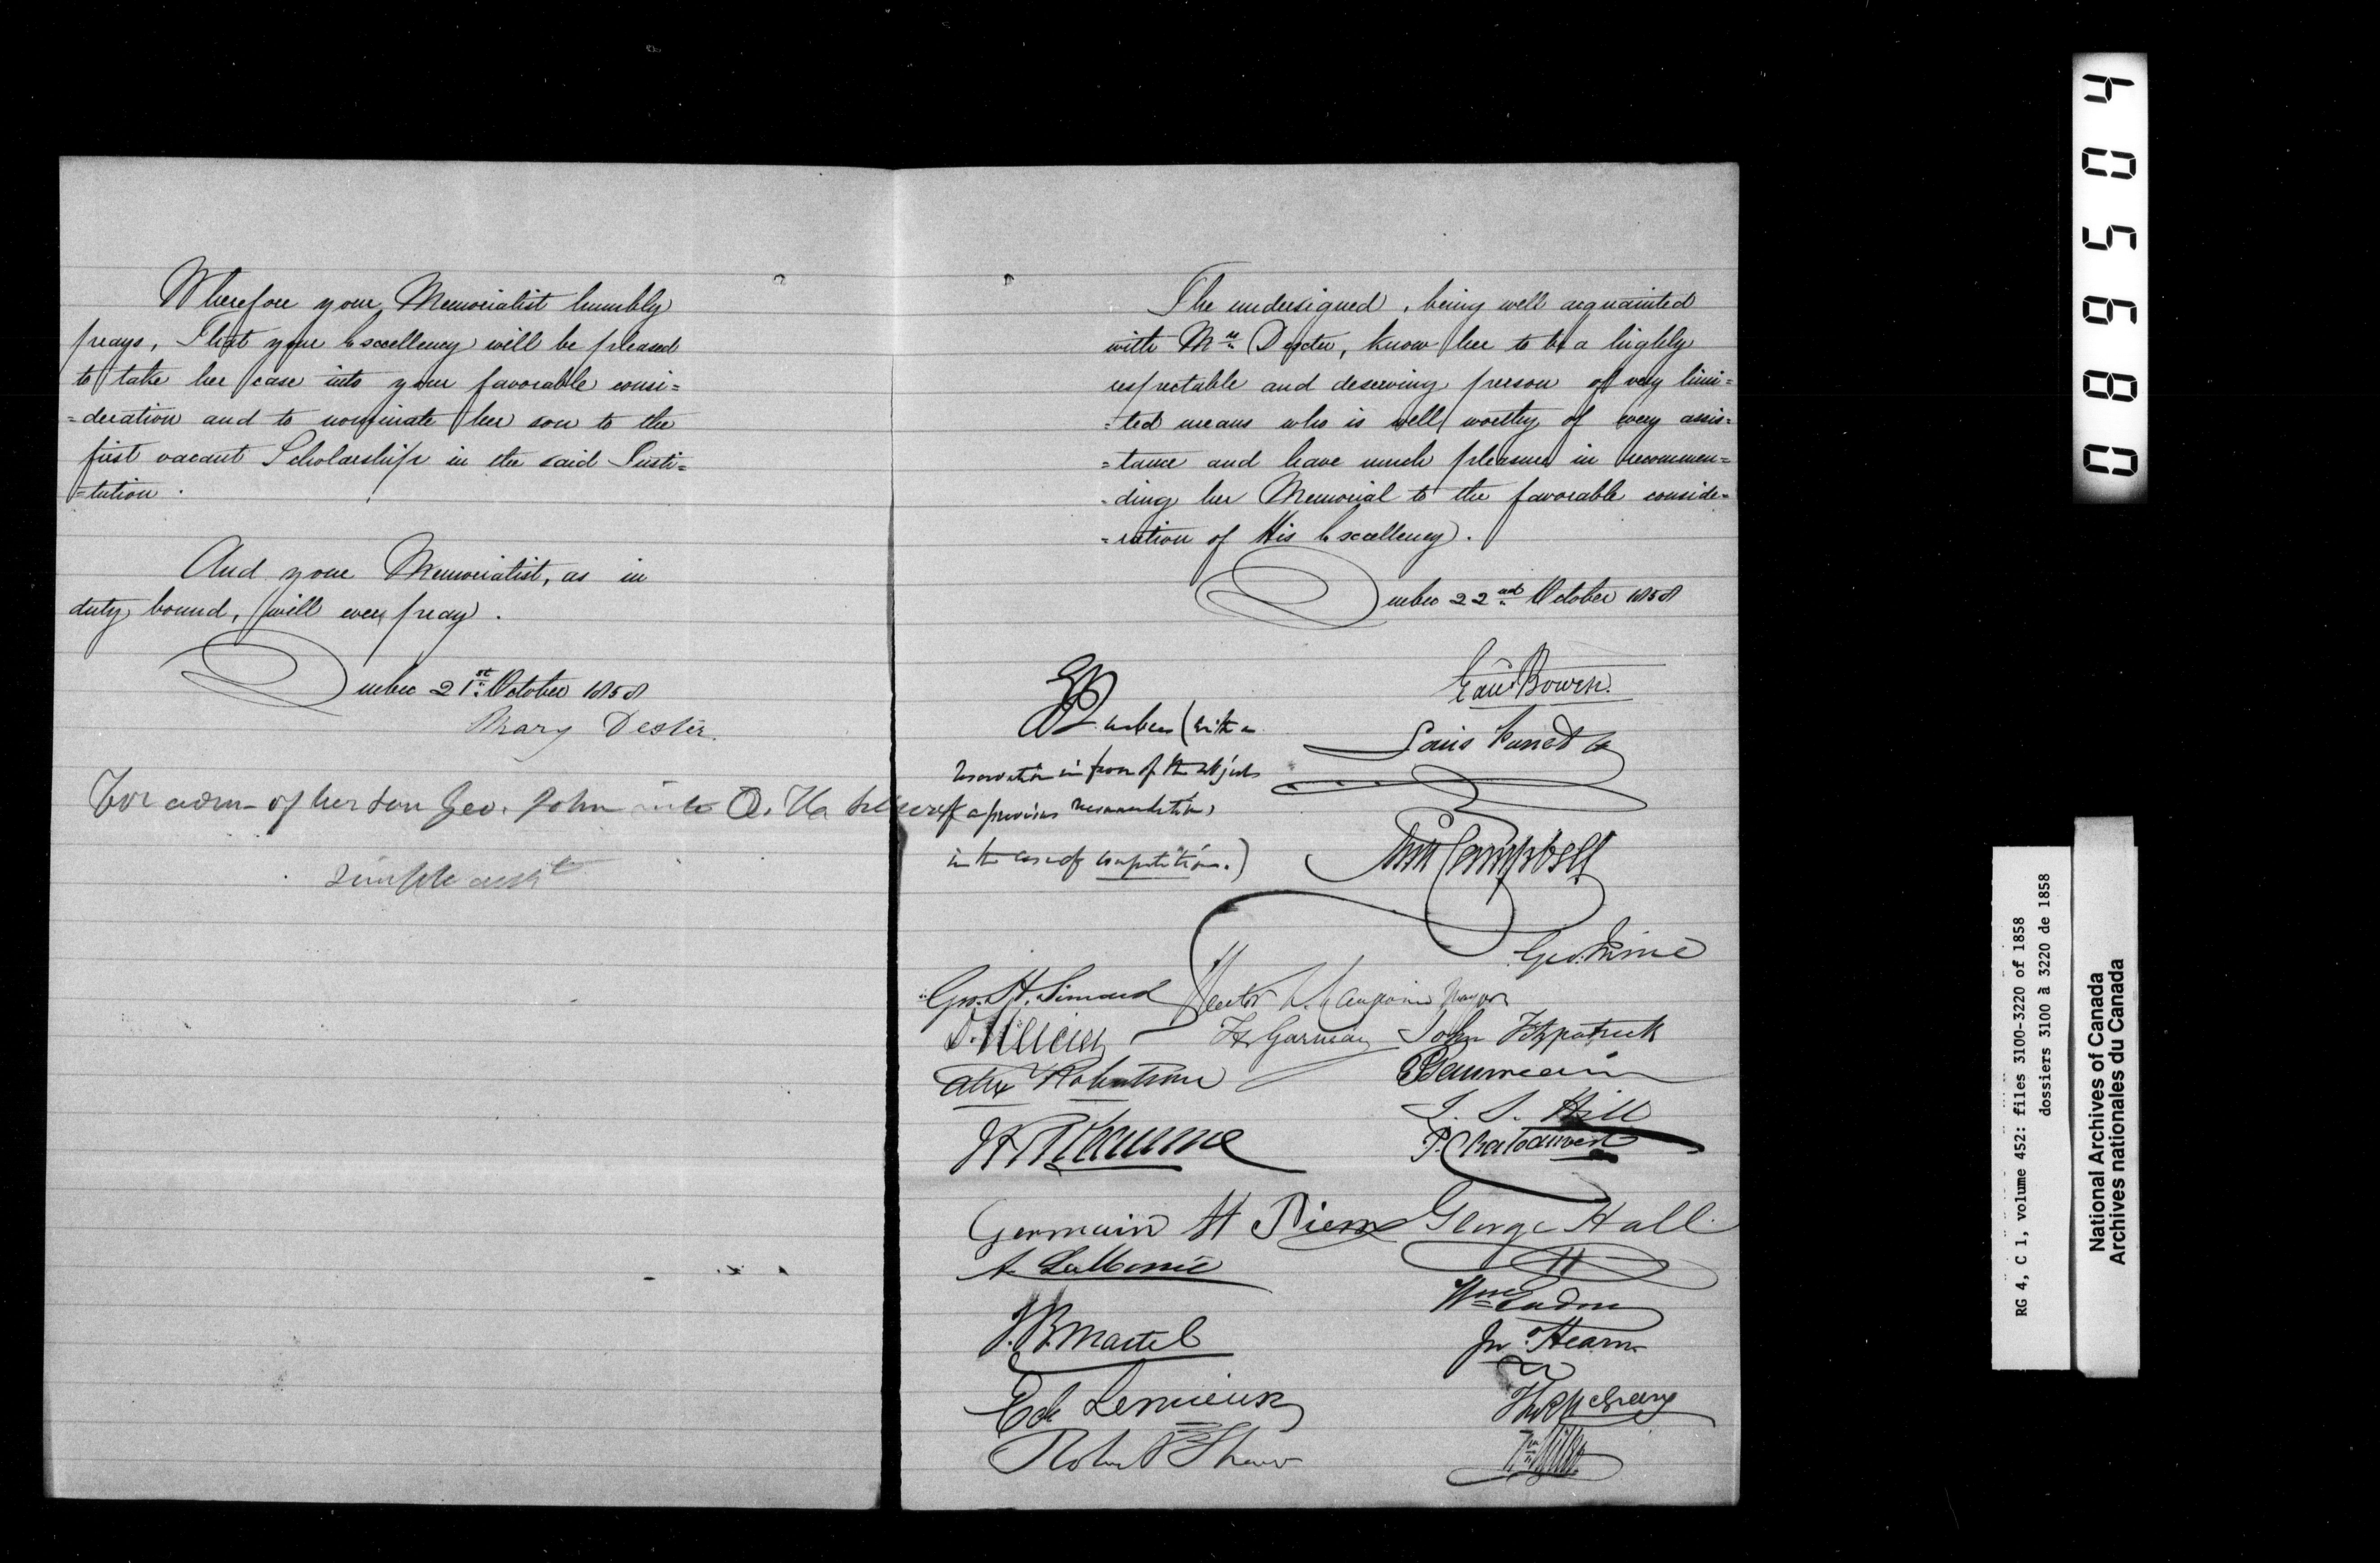 Wherefore your Memorialist humbly
prays, That your Excellency will be pleased
to take her case into your favorable consi=
=deration and to nominate her son to the
first vacant Scholarship in the said Insti=
=tution.
And your Memorialist, as in
duty bound, will ever pray.
Quebec 21st October 1858
Mary Dexter.
For adm. of her son Geo. John into Q. H.
simple
The undersigned, being well acquainted
with Mrs Dexter, know her to be a highly
respectable and deserving person of very limi=
=ted means who is well worthy of every assis=
=tance and have much pleasure in recommen=
=ding her Memorial to the favorable conside=
=ration of His Excellency.
Quebec 22nd October 1858
Edwd Bowen.
Quebec (with a
reservation in favor of the objects
of a previous recommendation,
in the case of competition.)
Campbell
Geo. H. Simard
Hector L. Langevin Mayor
John Fitzpatrick
Alex Robertson
J. S. Hill
Germain St Pierre
George Hall
J. B. Martel
Jno Hearn
Ed. Lemieux
Robert Shaw
0 8 9 5 0 4
RG 4, C 1, volume 452: files 3100-3220 of 1858
dossiers 3100 à 3220 de 1858
National Archives of Canada
Archives nationales du Canada